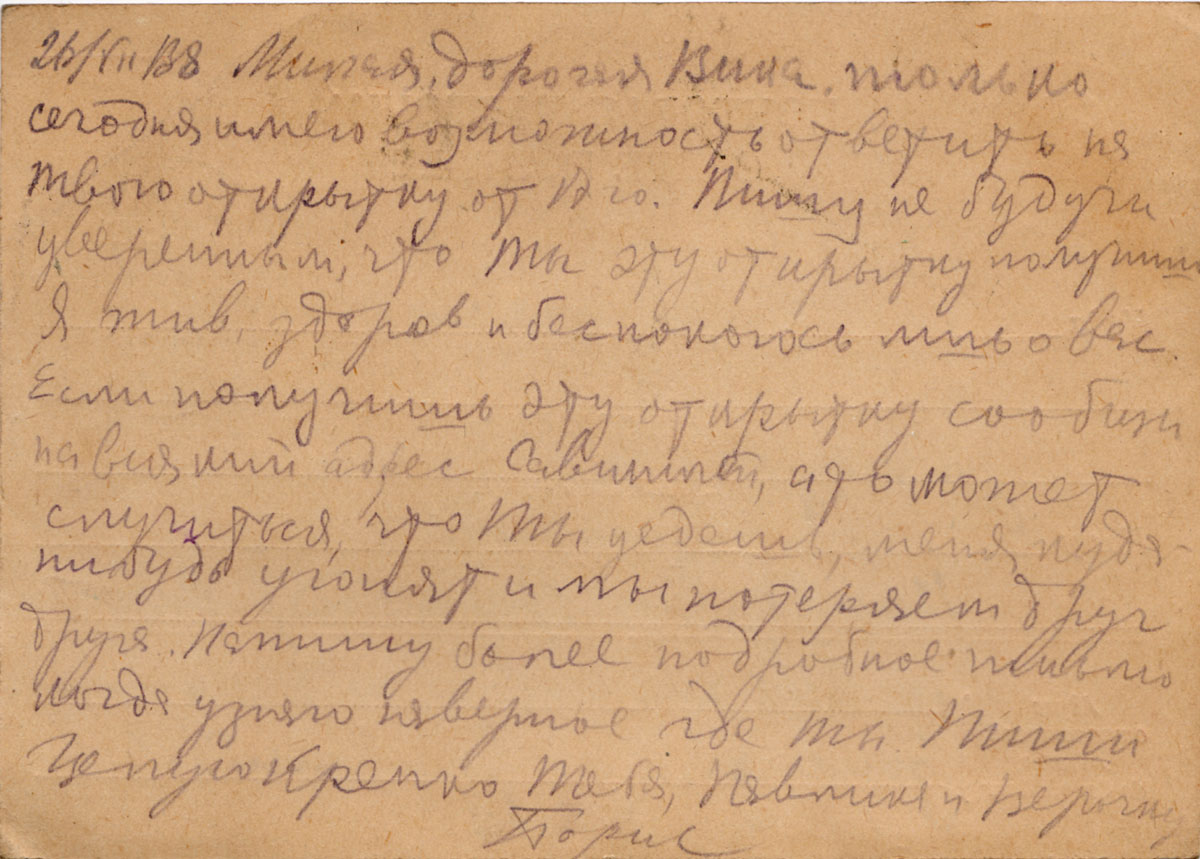 Милая, дорогая Вика, только
сегодня имею возможность ответить на
твою открытку от 17 го. Пишу не будучи
уверенным, что ты эту открытку получишь
Я жив, здоров и беспокоюсь лишь о вас
Если получишь эту открытку сообщи
на всякий адрес а то может
случиться, что ты уедешь, меня куда-
нибудь угонят и мы потеряем друг
друга. Напишу более подробное письмо
когда узнаю наверное где ты Пиши
Целую крепко тебя, Павлика и Верочку
Борис